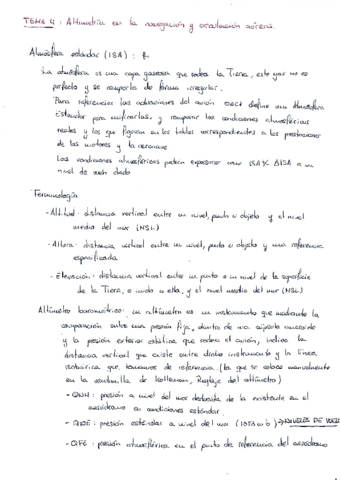 TEMA 4: Altimetría en la navegación y circulación aéreas.
Atmósfera estándar (ISA):
La atmósfera es una capa gaseosa que rodea la Tierra, este gas no es
perfecto y se comporta de forma irregular.
Para referenciar las actuaciones del avión OACI define una Atmósfera
Estándar para unificarlas, y comparar las condiciones atmosféricas
reales y las que figuran en las tablas correspondientes a las prestaciones
de los motores y la aeronave
Las condiciones atmosféricas pueden expresarse como ISA ± ΔISA a un
nivel de vuelo dado
Terminología
- Altitud: distancia vertical entre un nivel, punto u objeto y el nivel
medio del mar (MSL)
- Altura: distancia vertical entre un nivel, punto u objeto y una referencia
especificada
- Elevación: distancia vertical entre un punto o un nivel de la superficie
de la Tierra, o unido a ella, y el nivel medio del mar (MSL)
Altímetro barométrico: un altímetro es un instrumento que mediante la
comparación entre una presión fija, dentro de una cápsula aneroide
y la presión exterior estática que rodea el avión, indica la
distancia vertical que existe entre dicho instrumento y la línea
isobárica que tomamos de referencia. (la que se coloca manualmente
en la ventanilla de Kollsman, Reglaje del altímetro)
- QNH: presión a nivel del mar deducida de la existente en el
aeródromo en condiciones estándar.
- QNE: presión estándar a nivel del mar (1013 mb) → NIVELES DE VUELO
- QFE: presión atmosférica en el punto de referencia del aeródromo